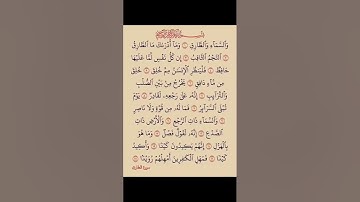 بسم الله الرحمن الرحيم
وَالسَّمَآءِ وَالطَّارِقِ ۝ وَمَآ أَدْرَىٰكَ مَا الطَّارِقُ
۝ النَّجْمُ الثَّاقِبُ ۝ إِن كُلُّ نَفْسٍ لَّمَّا عَلَيْهَا
حَافِظٌ ۝ فَلْيَنظُرِ الْإِنسَٰنُ مِمَّ خُلِقَ ۝ خُلِقَ
مِن مَّآءٍ دَافِقٍ ۝ يَخْرُجُ مِنۢ بَيْنِ الصُّلْبِ
وَالتَّرَآئِبِ ۝ إِنَّهُۥ عَلَىٰ رَجْعِهِۦ لَقَادِرٌ ۝ يَوْمَ
تُبْلَى السَّرَآئِرُ ۝ فَمَا لَهُۥ مِن قُوَّةٍ وَلَا نَاصِرٍ
۝ وَالسَّمَآءِ ذَاتِ الرَّجْعِ ۝ وَالْأَرْضِ ذَاتِ
الصَّدْعِ ۝ إِنَّهُۥ لَقَوْلٌ فَصْلٌ ۝ وَمَا هُوَ
بِالْهَزْلِ ۝ إِنَّهُمْ يَكِيدُونَ كَيْدًا ۝ وَأَكِيدُ
كَيْدًا ۝ فَمَهِّلِ الْكَٰفِرِينَ أَمْهِلْهُمْ رُوَيْدًۢا ۝
سورة الطارق